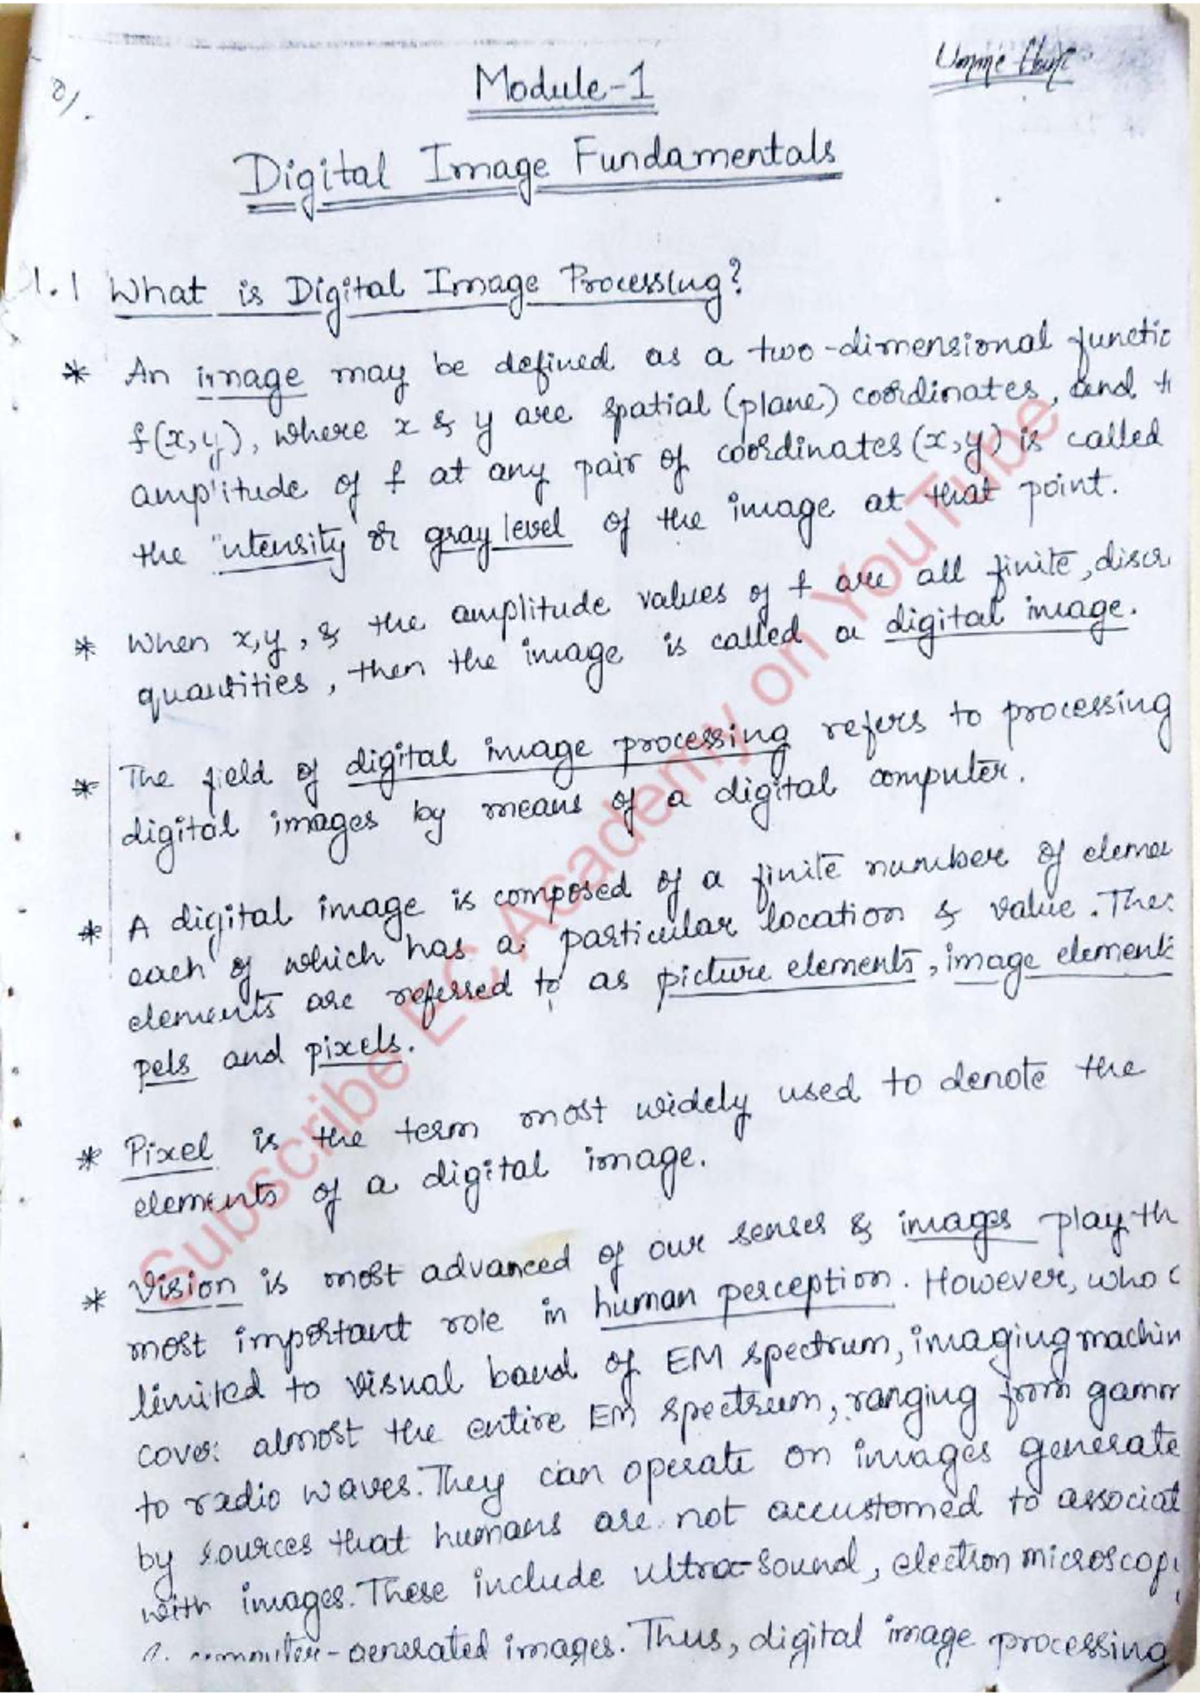 Module-1
Digital Image Fundamentals
1.1 What is Digital Image Processing?
* An image may be defined as a two-dimensional functio
f(x,y), where x & y are spatial (plane) coordinates, and th
amplitude of f at any pair of coordinates (x,y) is called
the intensity or gray level of the image at that point.
* When x,y, & the amplitude values of f are all finite, discr
quantities, then the image is called a digital image.
* The field of digital image processing refers to processing
digital images by means of a digital computer.
* A digital image is composed of a finite number of elemen
each of which has a particular location & value. Thes
elements are referred to as picture elements, image elements
pels and pixels.
* Pixel is the term most widely used to denote the
elements of a digital image.
* Vision is most advanced of our senses & images play th
most important role in human perception. However, who
limited to visual band of EM spectrum, imaging machin
cover almost the entire EM spectrum, ranging from gamm
to radio waves. They can operate on images generate
by sources that humans are not accustomed to associat
with images. These include ultra-sound, electron microscopy
& computer-generated images. Thus, digital image processing
Subscribe EC Academy on YouTube